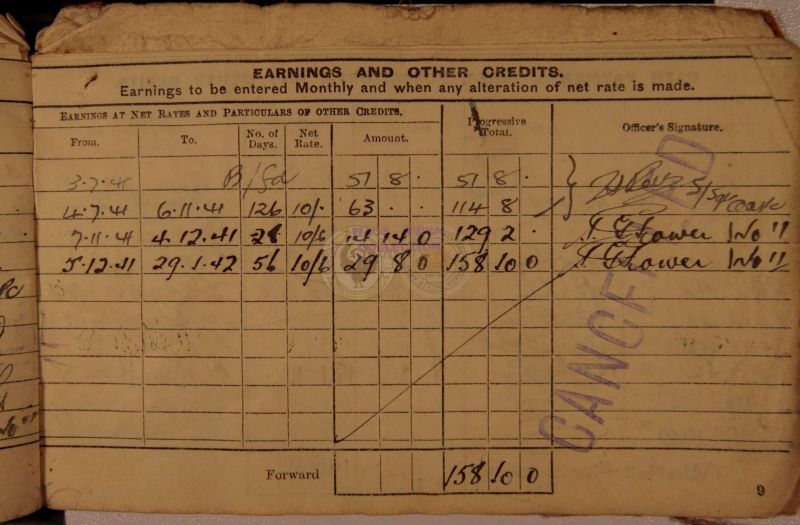 EARNINGS AND OTHER CREDITS.
Earnings to be entered Monthly and when any alteration of net rate is made.
EARNINGS AT NET RATES AND PARTICULARS OF OTHER CREDITS.
From. To. No. of Days. Net Rate. Amount. Progressive Total. Officer's Signature.
3.7.41 B/Fd 51 8 . 51 8 .
4.7.41 6.11.41 126 10/. 63 . . 114 8
7.11.41 4.12.41 28 10/6 14 14 0 129 2 .
5.12.41 29.1.42 56 10/6 29 8 0 158 10 0
CANCELLED
Forward 158 10 0
9